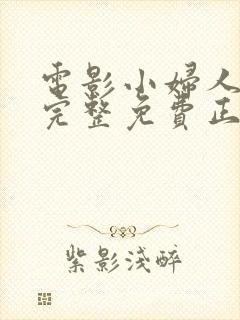 電影小婦人
完整免費正
紫影淺醉